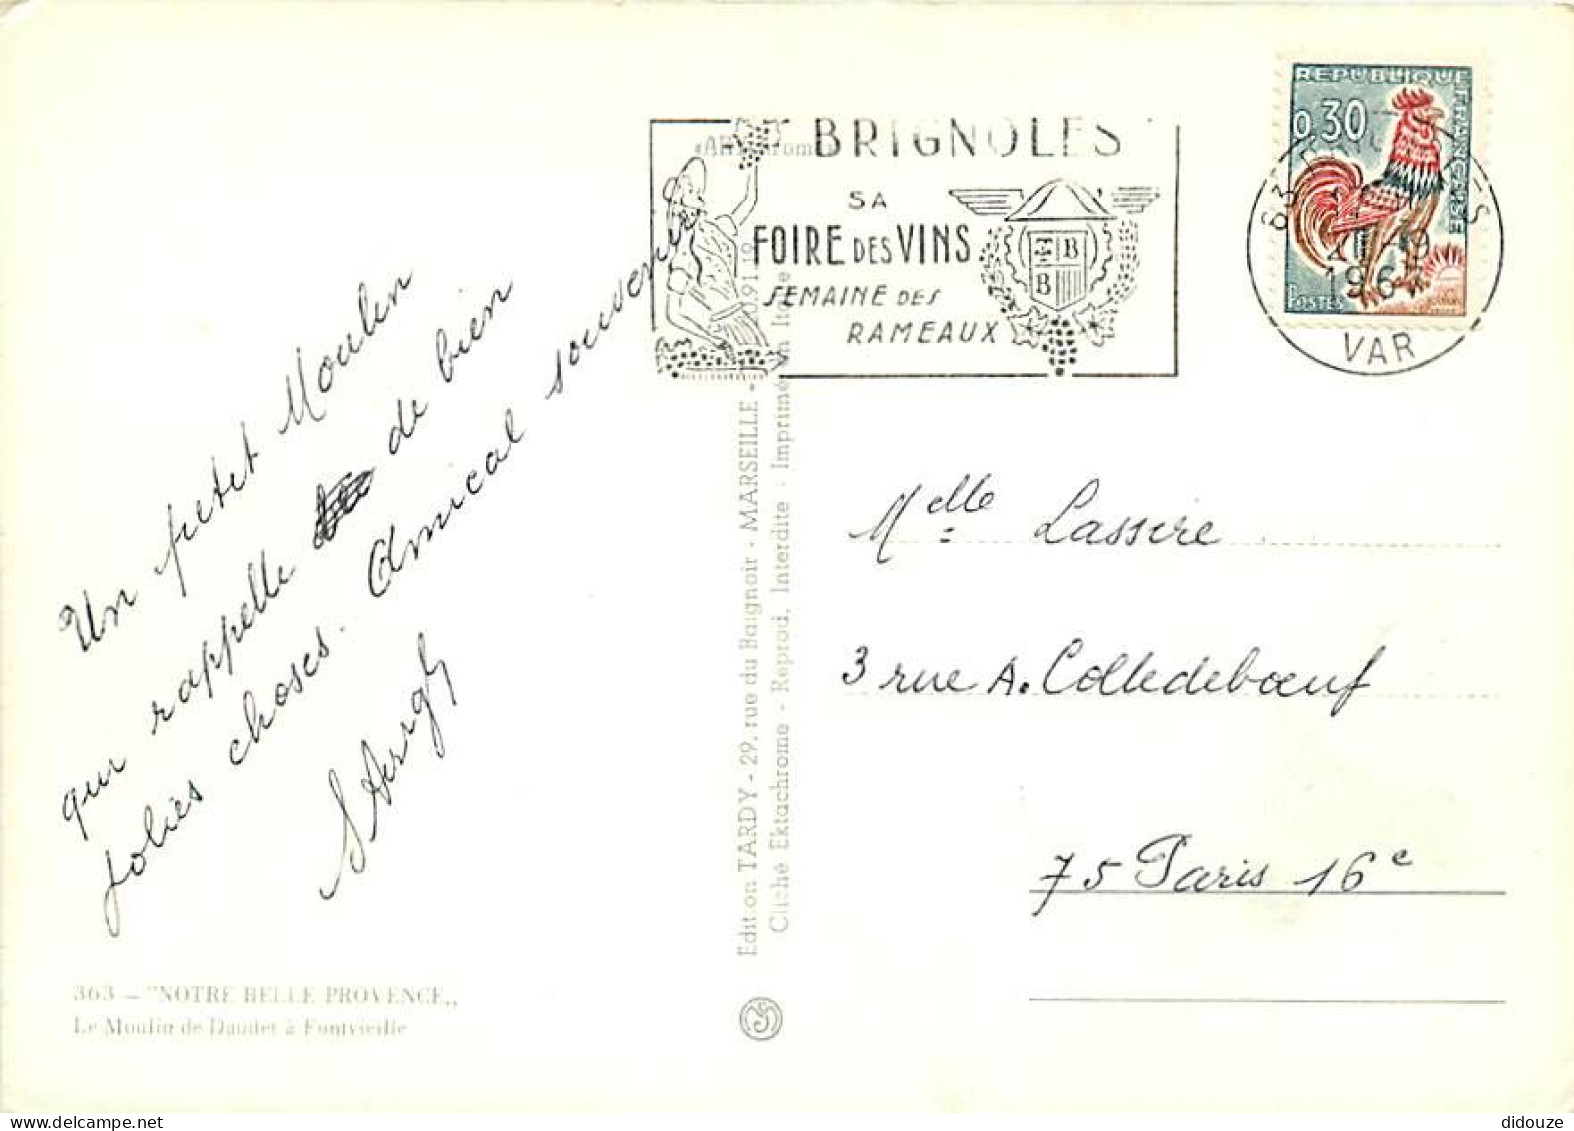 Un petit Moulin
qui rappelle de bien
jolies choses. Amical souvenir
363 — "NOTRE BELLE PROVENCE„
Le Moulin de Daudet à Fontvieille
Edition TARDY - 29, rue du Baignoir - MARSEILLE -
Cliché Ektachrome - Reprod. Interdite - Imprimé en Italie
BRIGNOLES
SA
FOIRE DES VINS
SEMAINE DES
RAMEAUX
B
B
REPUBLIQUE FRANÇAISE
0,30
POSTES
VAR
Melle Lassere
3 rue A. Colledebœuf
75 Paris 16e
didouze